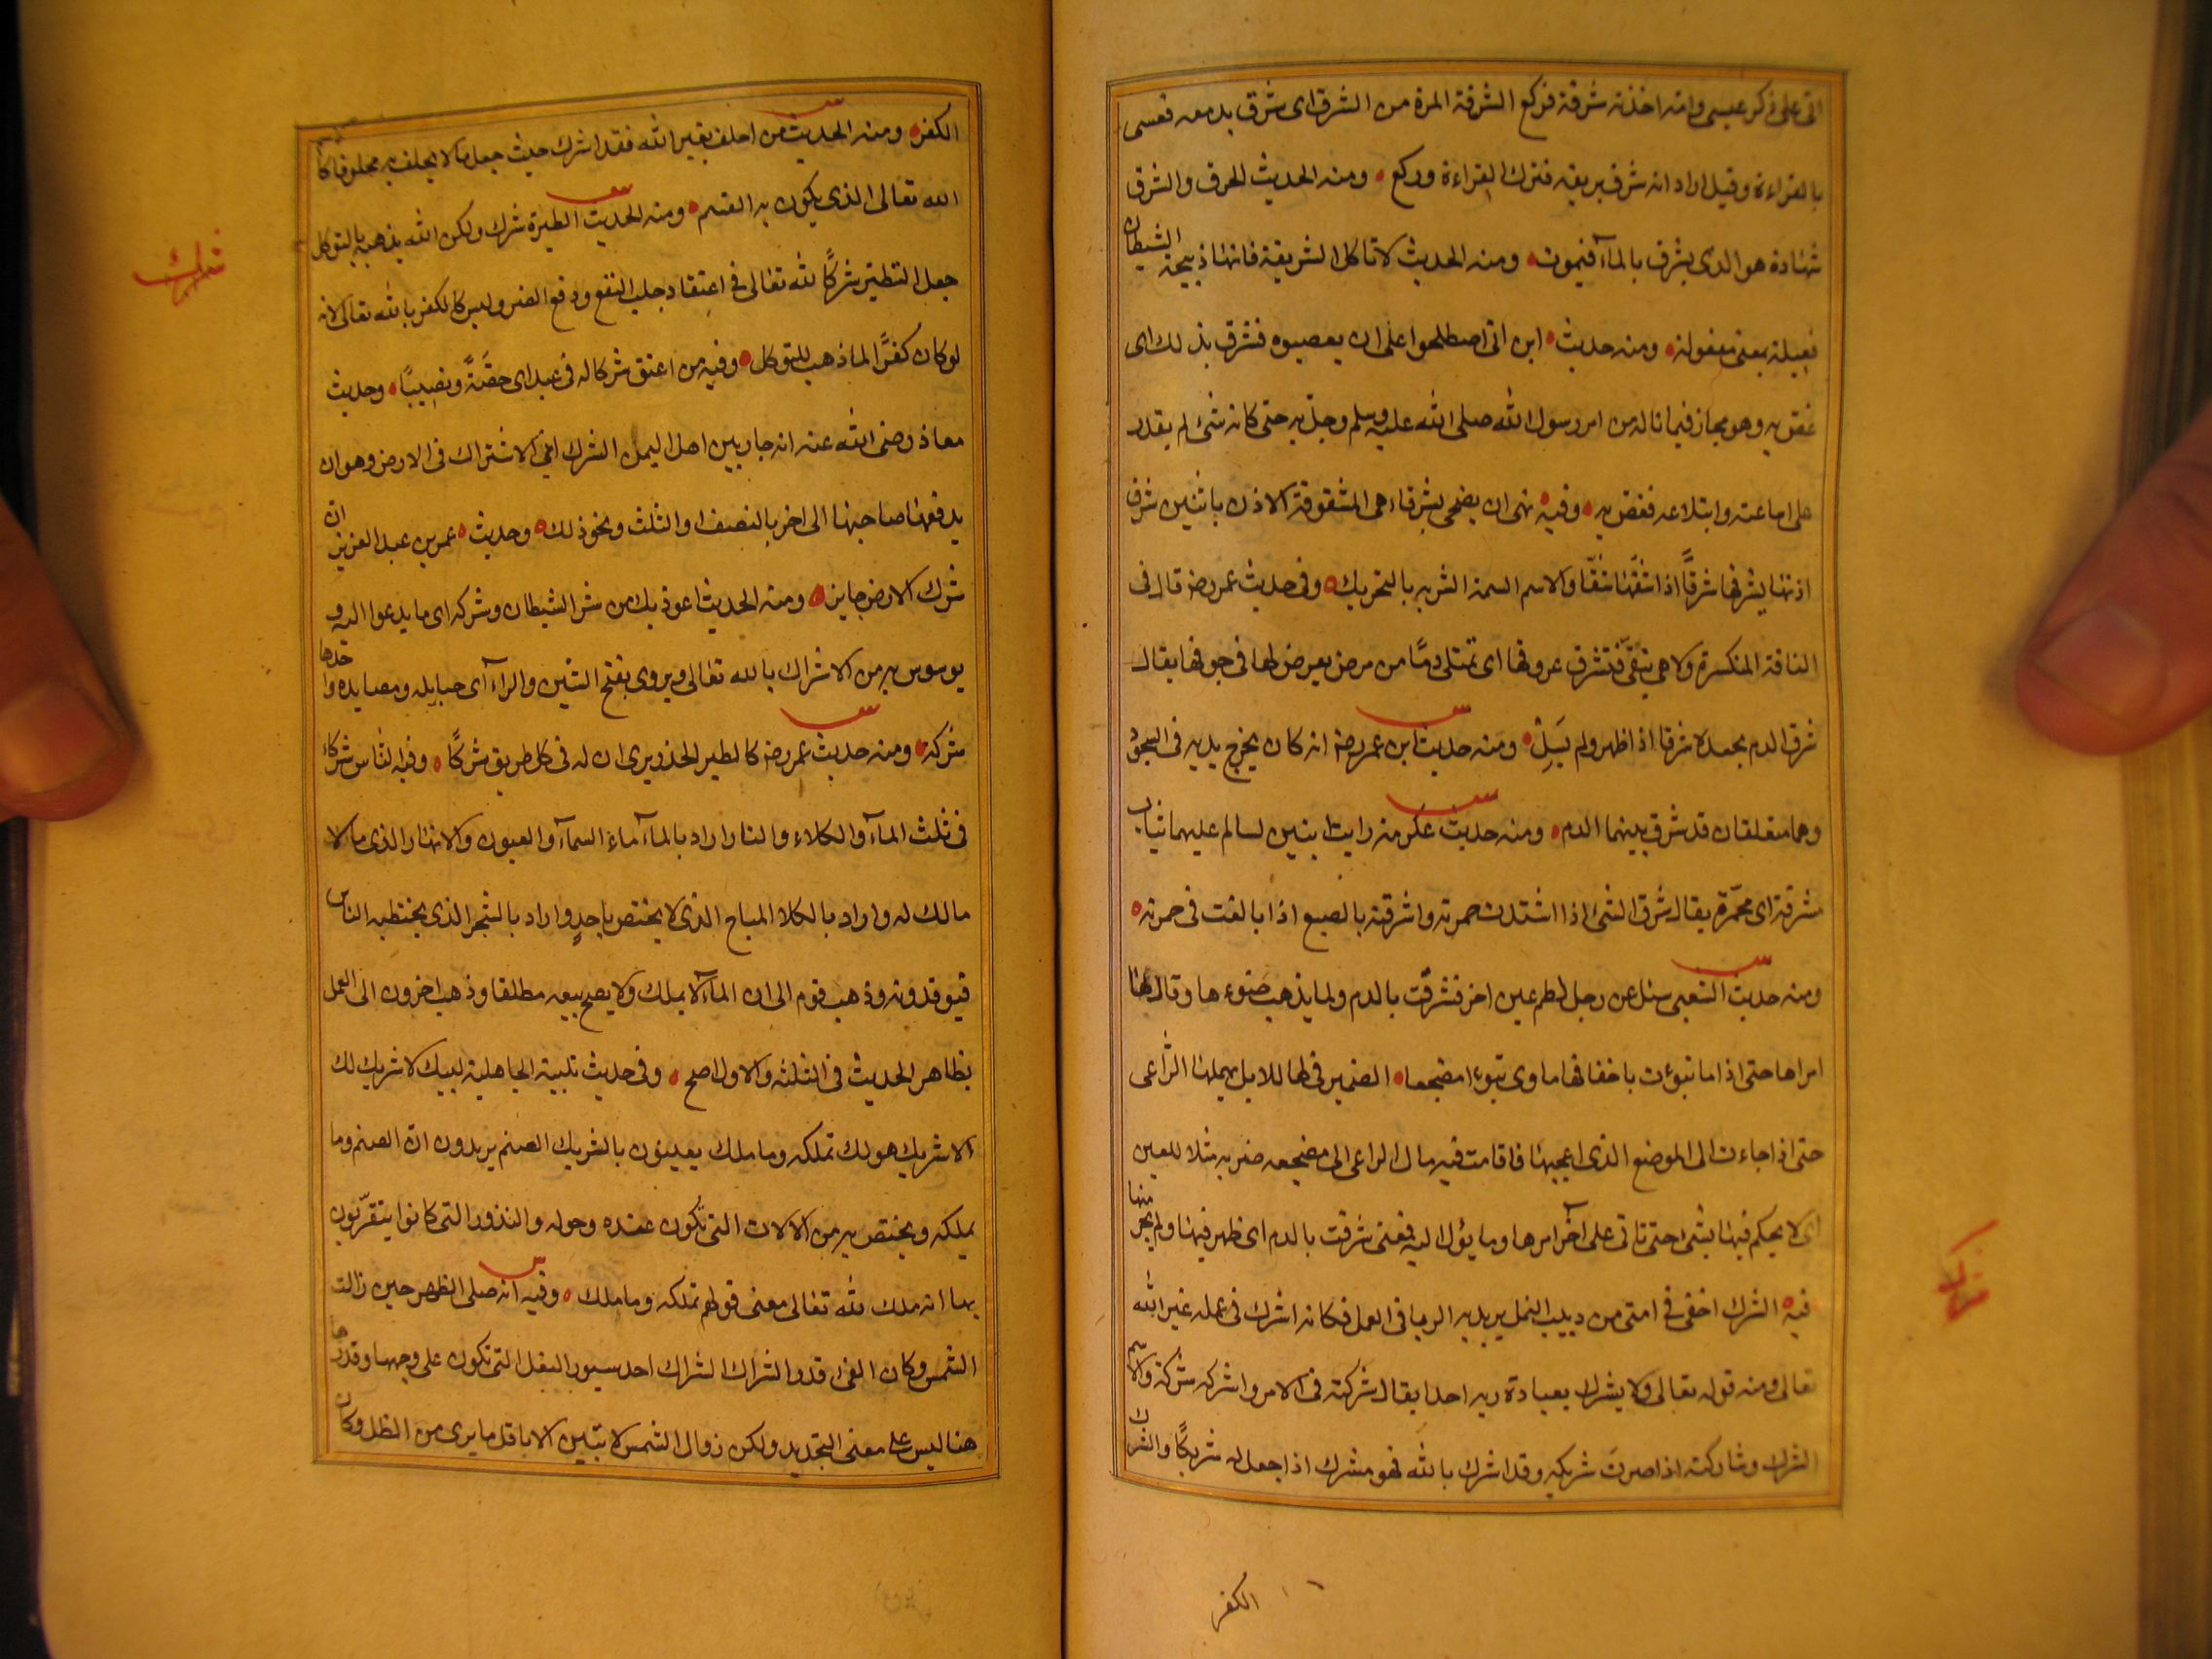 اتى على ذكر عيسى وامه اخذته شرقة فركع الشرقة المرة من الشرق اى شرق بدمعه فعسى
بالقراءة وقيل اراد انه شرق بريقه فترك القراءة وركع ومنه الحديث الحرق والشرق
شهادة هو الذى يشرق بالمآء فيموت ومنه الحديث لا تاكل الشريقة فانها ذبيحة الشيطان
فعيلة بمعنى مفعولة ومنه حديث ابن ابى اصطلحوا على ان يعصبوه فشرق بذلك اى
غص به وهو مجاز فيما ناله من امر رسول الله صلى الله عليه وسلم وحل به حتى كانه شئ لم يقدر
على اساغته وابتلاعه فغص به وفيه نهى ان يضحى بشرقاء هى المشقوقة الاذن باثنين شرق
اذنها يشرقها شرقًا اذا شقها شقّا والاسم السمة الشرقة بالتحريك وفى حديث عمر رضه قال فى
الناقة المنكسرة ولا هى بفقئ فتشرق عروقها اى تمتلى دمًا من مرض يعرض لها فى جوفها يقال
شرق الدم بجسده شرقا اذا ظهر ولم يسل ومنه حديث ابن عمر رضه انه كان يخرج يديه فى السجود
وهما متفلقتان قد شرق بينهما الدم ومنه حديث عكرمة رايت ابنين لسالم عليهما ثياب
مشرقة اى محمّرة يقال شرق الشئ اذا اشتدت حمرته واشرقته بالصبغ اذا بالغت فى حمرته
ومنه حديث الشعبى سئل عن رجل لطم عين اخر فشرقت بالدم ولما يذهب ضوءها وقال لها
امرها حتى اذا ما تبوءت باخفافها ماوى تبوءا مضجعا الضمير فى لها للابل يهملها الراعى
حتى اذا جاءت الى الموضع الذى اعجبها فاقامت فيه مال الراعى الى مضجعه ضربه مثلا للعين
اى لا يحكم فيها بشئ حتى تاتى على آخر امرها وما يؤل اليه فمعنى شرقت بالدم اى ظهر فيها ولم يجر منها
فيه الشرك اخفى فى امتى من دبيب النمل يريد به الريا فى العمل فكانه اشرك فى عمله غير الله
تعالى ومنه قوله تعالى ولا يشرك بعبادة ربه احدا يقال شركته فى الامر واشركه شركة والاسم
الشرك وشاركته اذا صرت شريكه وقد اشرك بالله فهو مشرك اذا جعل له شريكًا والشرك
شرك
الكفر
الكفر ومنه الحديث من احلف بغير الله فقد اشرك حيث جعل ما لا يحلف به محلوفا كاسم
الله تعالى الذى يكون به القسم ومنه الحديث الطيرة شرك ولكن الله يذهبه بالتوكل
جعل التطير شركًا لله تعالى فى اعتقاد جلب النفع ودفع الضر وليس كالكفر بالله تعالى لانه
لو كان كفرًا لما ذهب بالتوكل وفيه من اعتق شركا له فى عبد اى حصّة ونصيبًا وحديث
معاذ رضى الله عنه انه جاز بين اهل اليمن الشرك اى الاشتراك فى الارض وهو ان
يدفعها صاحبها الى اخر بالنصف او الثلث ونحو ذلك وحديث عمر بن عبد العزيز ان
شرك الارض جايز ومنه الحديث اعوذ بك من شر الشيطان وشركه اى ما يدعوا اليه و
يوسوس به من الاشراك بالله تعالى ويروى بفتح الشين والرآء اى حبايله ومصايده واحدها
شركة ومنه حديث عمر رضه كالطير الحذر يرى ان له فى كل طريق شركًا وفيه الناس شركاء
فى ثلث المآء والكلاء والنار اراد بالمآء مآء السمآء والعيون والانهار الذى ما لا
مالك له واراد بالكلا المباح الذى لا يختص باحدٍ واراد بالشجر الذى يحتطبه الناس
فيوقدونه وذهب قوم الى ان المآء لا يملك ولا يصح بيعه مطلقا وذهب اخرون الى العمل
بظاهر الحديث فى الثلثة والاول اصح وفى حديث تلبية الجاهلية لبيك لا شريك لك
الا شريك هو لك تملكه وما ملك يعينون بالشريك الصنم يريدون انّ الصنم وما
يملكه ويختص به من الالات التى تكون عنده وحوله والنذور التى كانوا يتقرّبون
بها انه ملك لله تعالى معنى قولهم تملكه وما ملك وفيه انه صلى الظهر حين زالت
الشمس وكان الفئ قدر الشراك الشراك احد سيور النعل التى تكون على وجهها وقدرها
هنا ليس على معنى التحديد ولكن زوال الشمس لا يتبين الا باقل ما يرى من الظل وكان
شرك